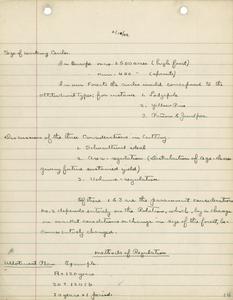 Size of Working Circles.
In Europe
(high forest)
In our Forests the circles would correspond to the
altitudinal types; for instance 1. Lodgepole
2. Yellow Pine
3. Piñon & Juniper
Discussion of the three Considerations in Cutting
1. Silvicultural ideal
2. Area-regulation (Distribution of Age-classes
giving future sustained yield)
3. Volume-regulation
Of these 1 & 3 are the permanent considerations
No. 2 depends entirely on the Rotation, which, by a change
in market conditions or change in
of the forest, be-
comes entirely changed.
Methods of Regulation
Allotment Plan Example
R = 120 years
20 years = 1 period.